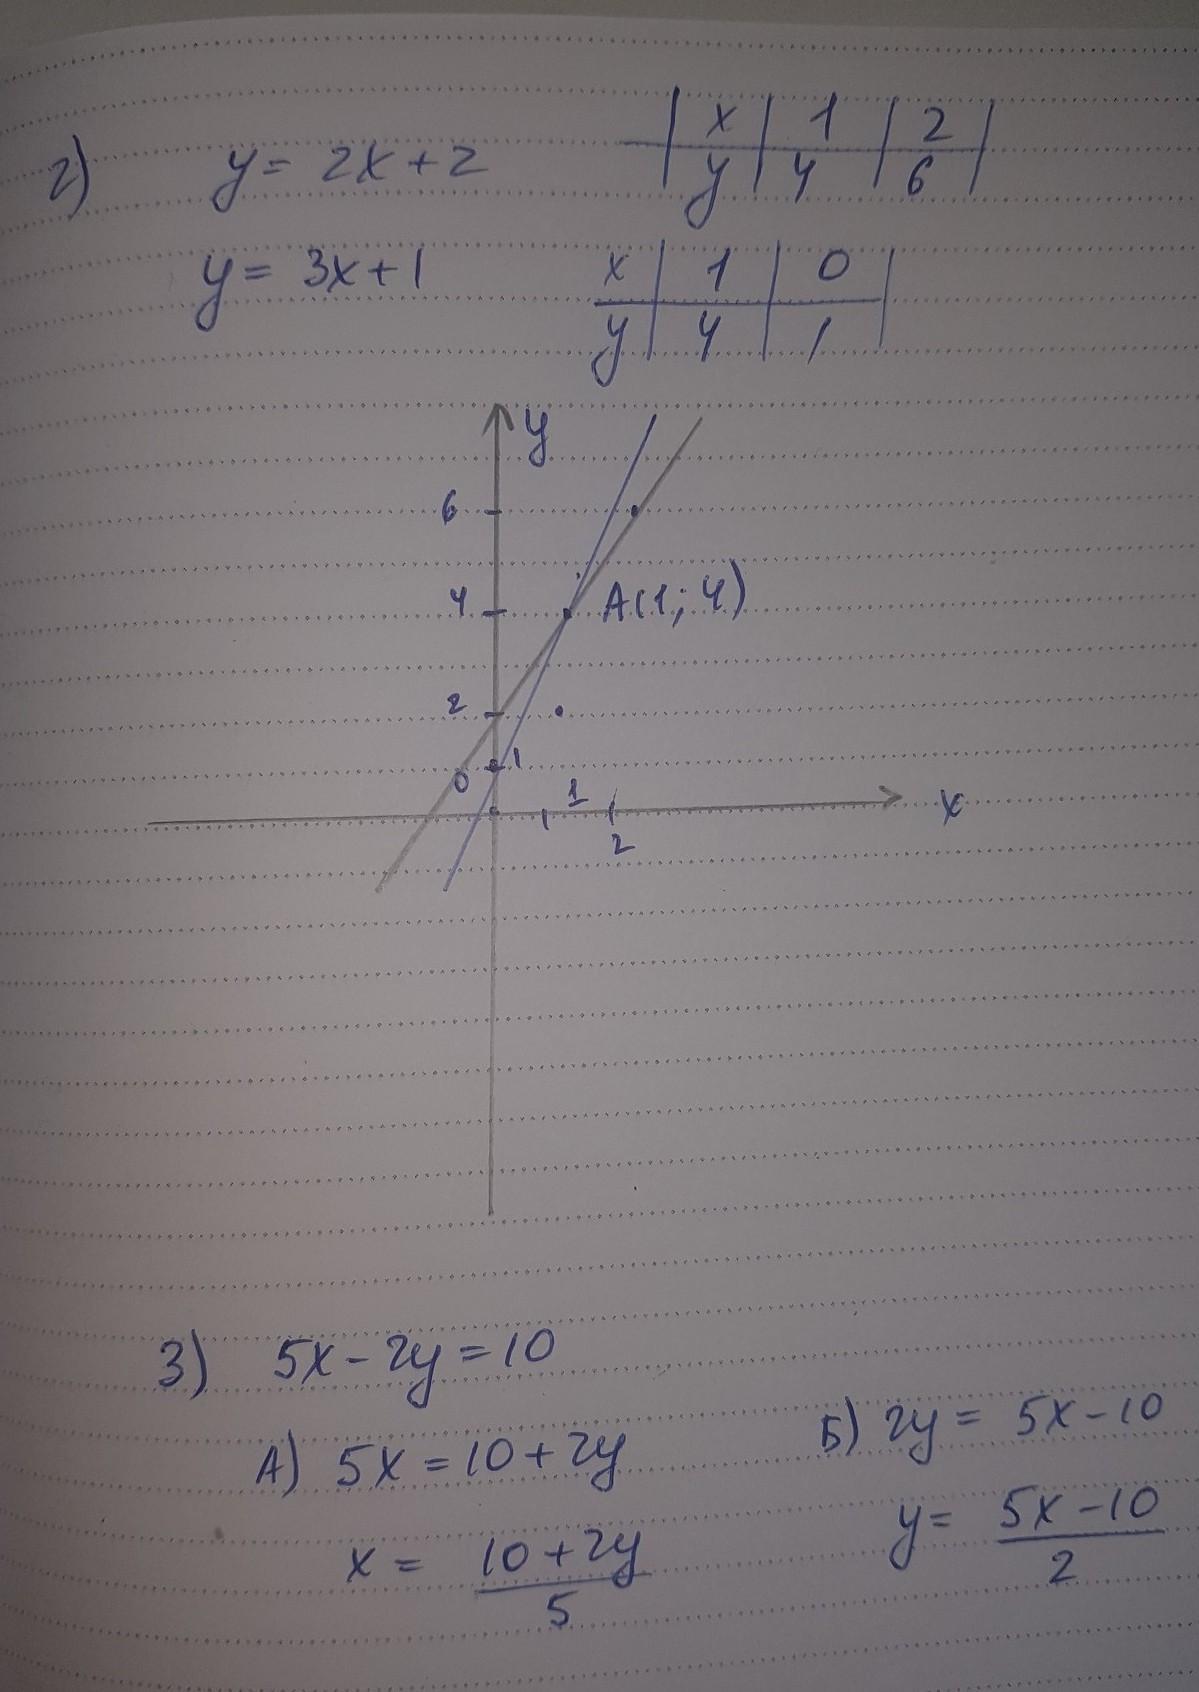 2) y = 2x + 2
x 1 2
y 4 6
y = 3x + 1
x 1 0
y 4 1
y
6
4 A(1; 4)
2
1
0
1
x
2
3) 5x - 2y = 10
А) 5x = 10 + 2y
Б) 2y = 5x - 10
x = (10 + 2y)/5
y = (5x - 10)/2